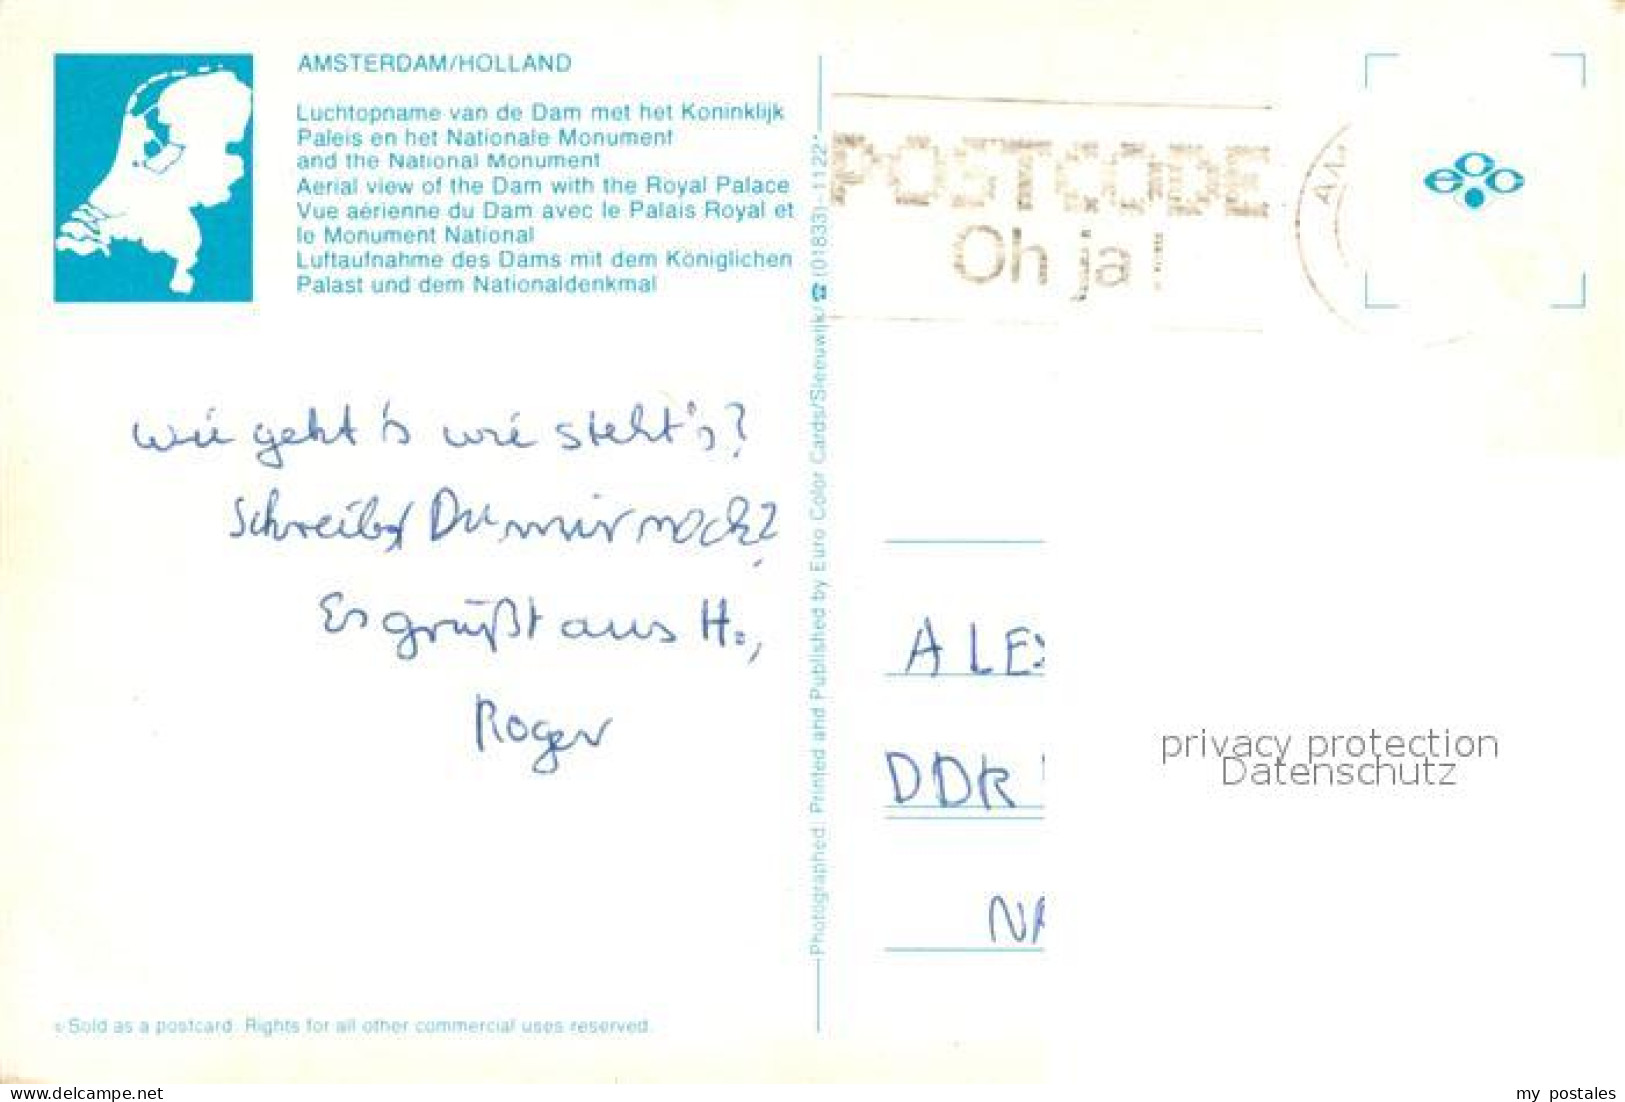 AMSTERDAM/HOLLAND
Luchtopname van de Dam met het Koninklijk
Paleis en het Nationale Monument
and the National Monument
Aerial view of the Dam with the Royal Palace
Vue aérienne du Dam avec le Palais Royal et
le Monument National
Luftaufnahme des Dams mit dem Königlichen
Palast und dem Nationaldenkmal
wie geht's wie steht's?
Schreibst Du mir noch?
Es grüßt aus H.,
Roger
© Sold as a postcard. Rights for all other commercial uses reserved.
Photographed, Printed and Published by Euro Color Cards/Sleeuwijk/☎(01833)-1122*
POSTCODE
Oh ja!
AM
ecc
ALEX
DDR
NA
privacy protection
Datenschutz
delcampe.net
my postales